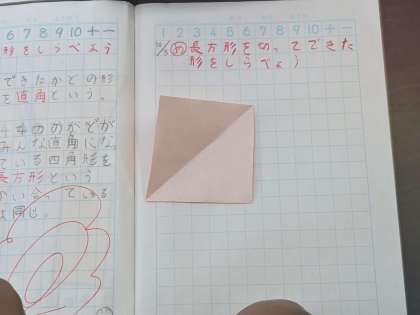 6 7 8 9 10 十 一
形をしらべよう
できたかどの形
を直角という。
4つのかどが
みんな直角にな
ている四角形を
長方形という
かい合っている
は同じ。
1 2 3 4 5 6 7 8 9 10 十 一
め 長方形を切ってできた
形をしらべよう